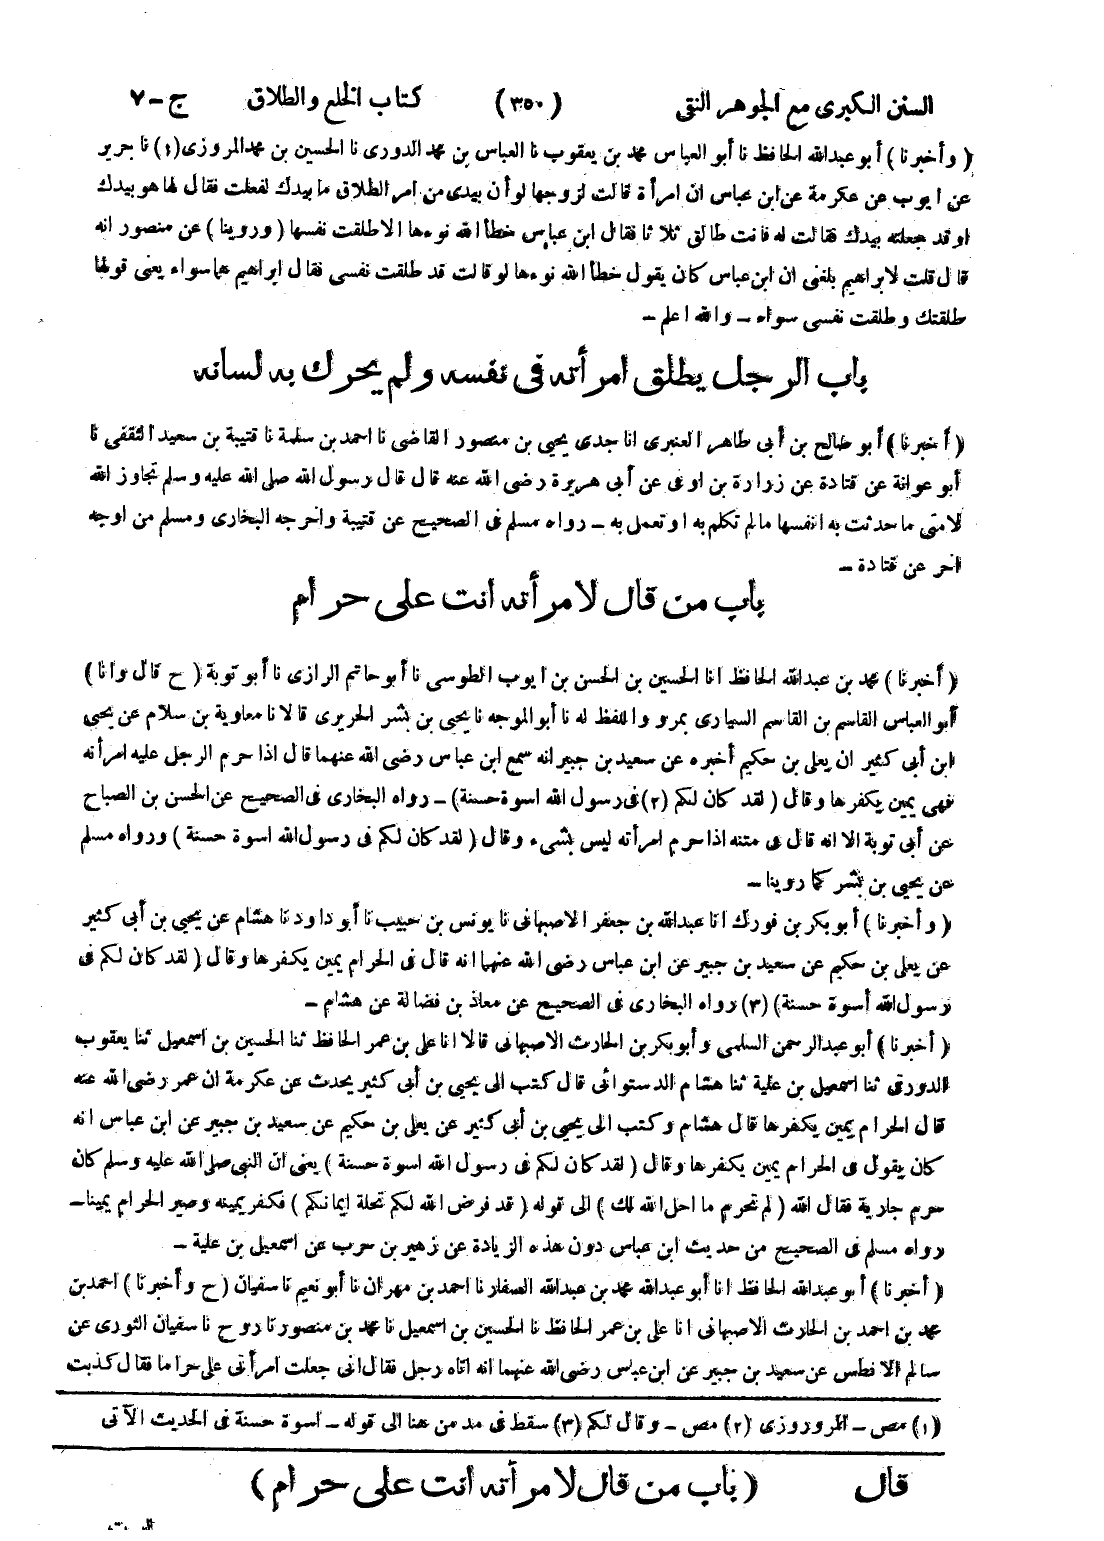 السنن الكبرى مع الجوهر النقى (٣٥٠) كتاب الخلع والطلاق ج - ٧
( وأخبرنا ) أبو عبدالله الحافظ نا أبو العباس محمد بن يعقوب نا العباس بن محمد الدورى نا الحسين بن محمد المروزى (١) نا جرير
عن ايوب عن عكرمة عن ابن عباس ان امرأة قالت لزوجها لو أن بيدى من امر الطلاق ما بيدك لفعلت فقال لها هو بيدك
او قد جعلته بيدك فقالت له فانت طالق ثلاثا فقال ابن عباس خطأ الله نوءها الا طلقت نفسها ( وروينا ) عن منصور انه
قال قلت لابراهيم بلغنى ان ابن عباس كان يقول خطأ الله نوءها لو قالت قد طلقت نفسى فقال ابراهيم هما سواء يعنى قولها
طلقتك وطلقت نفسى سواء - والله اعلم -
باب الرجل يطلق امرأته فى نفسه ولم يحرك به لسانه
( أخبرنا ) أبو صالح بن أبى طاهر العنبرى انا جدى يحيى بن منصور القاضى نا احمد بن سلمة نا قتيبة بن سعيد الثقفى نا
أبو عوانة عن قتادة عن زرارة بن اوفى عن أبى هريرة رضى الله عنه قال قال رسول الله صلى الله عليه وسلم تجاوز الله
لامتى ما حدثت به انفسها ما لم تكلم به او تعمل به - رواه مسلم فى الصحيح عن قتيبة واخرجه البخارى ومسلم من اوجه
اخر عن قتادة -
باب من قال لامرأته انت على حرام
( أخبرنا ) محمد بن عبدالله الحافظ انا الحسين بن الحسن بن ايوب الطوسى نا أبو حاتم الرازى نا أبو توبة ( ح قال وانا )
أبو العباس القاسم بن القاسم السيارى بمرو واللفظ له نا أبو الموجه نا يحيى بن بشر الحريرى قالا نا معاوية بن سلام عن يحيى
ابن أبى كثير ان يعلى بن حكيم أخبره عن سعيد بن جبير انه سمع ابن عباس رضى الله عنهما قال اذا حرم الرجل عليه امرأته
فهى يمين يكفرها وقال ( لقد كان لكم (٢) فى رسول الله اسوة حسنة) - رواه البخارى فى الصحيح عن الحسن بن الصباح
عن أبى توبة الا انه قال فى متنه اذا حرم امرأته ليس بشىء وقال ( لقد كان لكم فى رسول الله اسوة حسنة ) ورواه مسلم
عن يحيى بن بشر كما روينا -
( وأخبرنا ) أبو بكر بن فورك انا عبدالله بن جعفر الاصبهانى نا يونس بن حبيب نا أبو داود نا هشام عن يحيى بن أبى كثير
عن يعلى بن حكيم عن سعيد بن جبير عن ابن عباس رضى الله عنهما انه قال فى الحرام يمين يكفرها وقال ( لقد كان لكم فى
رسول الله أسوة حسنة) (٣) رواه البخارى فى الصحيح عن معاذ بن فضالة عن هشام -
( أخبرنا ) أبو عبدالرحمن السلمى وأبو بكر بن الحارث الاصبهانى قالا انا على بن عمر الحافظ ثنا الحسين بن اسمعيل ثنا يعقوب
الدورقى ثنا اسمعيل بن علية ثنا هشام الدستوائى قال كتب الى يحيى بن أبى كثير يحدث عن عكرمة ان عمر رضى الله عنه
قال الحرام يمين يكفرها قال هشام وكتب الى يحيى بن أبى كثير عن يعلى بن حكيم عن سعيد بن جبير عن ابن عباس انه
كان يقول فى الحرام يمين يكفرها وقال ( لقد كان لكم فى رسول الله اسوة حسنة ) يعنى ان النبى صلى الله عليه وسلم كان
حرم جارية فقال الله ( لم تحرم ما احل الله لك ) الى قوله ( قد فرض الله لكم تحلة ايمانكم ) فكفر يمينه وصير الحرام يمينا -
رواه مسلم فى الصحيح من حديث ابن عباس دون هذه الزيادة عن زهير بن حرب عن اسمعيل بن علية -
( أخبرنا ) أبو عبدالله الحافظ انا أبو عبدالله محمد بن عبدالله الصفار نا احمد بن مهران نا أبو نعيم نا سفيان ( ح وأخبرنا ) احمد بن
محمد بن احمد بن الحارث الاصبهانى انا على بن عمر الحافظ نا الحسين بن اسمعيل نا محمد بن منصور نا روح نا سفيان الثورى عن
سالم الافطس عن سعيد بن جبير عن ابن عباس رضى الله عنهما انه اتاه رجل فقال انى جعلت امرأتى على حراما فقال كذبت
(١) مص - المروروزى (٢) مص - وقال لكم (٣) سقط فى مد من هنا الى قوله - اسوة حسنة فى الحديث الآتى
قال ( باب من قال لامرأته انت على حرام )